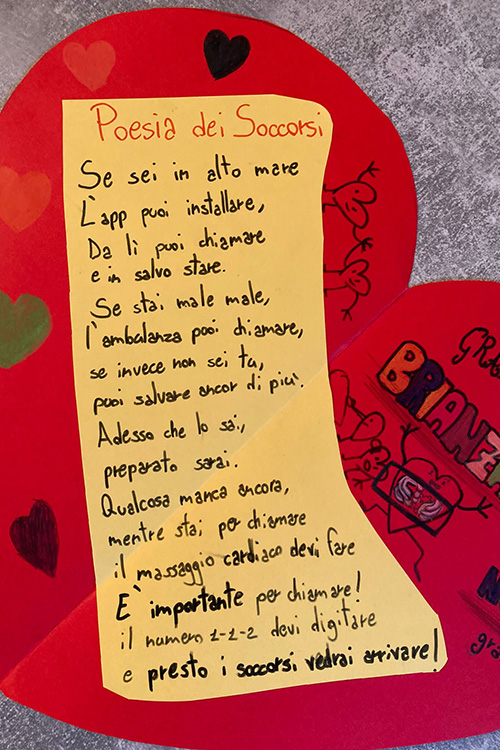 Poesia dei Soccorsi
Se sei in alto mare
L'app puoi installare,
Da lì puoi chiamare
e in salvo stare.
Se stai male male,
l'ambulanza puoi chiamare,
se invece non sei tu,
puoi salvare ancor di più.
Adesso che lo sai,
preparato sarai.
Qualcosa manca ancora,
mentre stai per chiamare
il massaggio cardiaco devi fare
E' importante per chiamare!
il numero 1-1-2 devi digitare
e presto i soccorsi vedrai arrivare!
BRIANZ